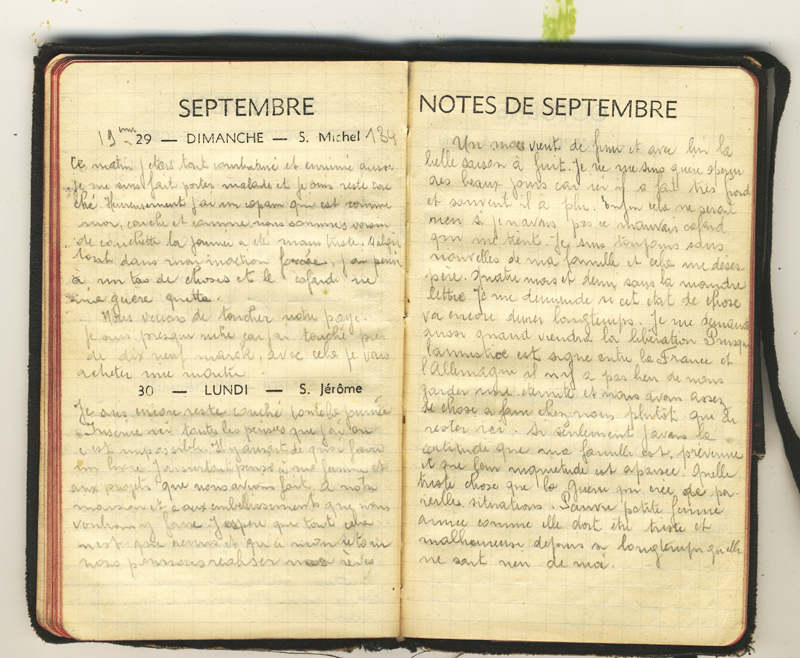 SEPTEMBRE
19ème 29 — DIMANCHE — S. Michel 134
Ce matin j'etais tout courbaturé et enrumé aussi
je me suis fait porter malade et je suis resté cou
ché. Heureusement j'ai un copain qui est comme
moi, couché et comme nous sommes voisin
de couchette la journée a été moins triste. Malgré
tout dans mon inaction forcée, j'ai pensé
à un tas de choses et le cafard ne
m'a guère quitté.
Nous venons de toucher notre paye.
Je suis presque riche car j'ai touché près
de dix neuf marck, avec cela je vais
acheter une montre.
30 — LUNDI — S. Jérôme
Je suis encore resté couché toute la journée
Inscrire ici toutes les pensées que j'ai eu
c'est impossible. Il y aurait de quoi faire
un livre. J'ai surtout pensé à ma femme et
aux projets que nous avions fait. A notre
maison et aux embellissements que nous
voulions y faire. J'espère que tout cela
n'est que remis et qu'à mon retour
nous pourrons réaliser nos rêves
NOTES DE SEPTEMBRE
Un mois vient de finir et avec lui la
belle saison à fuit. Je ne me suis guère aperçu
des beaux jours car ici il a fait très froid
et souvent il a plu. Enfin cela ne serait
rien si je n'avais pas ce mauvais cafard
qui me tient. Je suis toujours sans
nouvelles de ma famille et cela me déses
père. Quatre mois et demi sans la moindre
lettre. Je me demande si cet état de chose
va encore durer longtemps. Je me demande
aussi quand viendra la libération Puisque
l'armistice est signé entre la France et
l'Allemagne il n'y a pas lieu de nous
garder une éternité et nous avons assez
de chose a faire chez nous plutôt que de
rester ici. Si seulement j'avais la
certitude que ma famille est prévenue
et que leur inquietude est apaisée. Quelle
triste chose que la guerre qui crée de pa-
reilles situations. Pauvre petite femme
aimée comme elle doit être triste et
malheureuse depuis si longtemps qu'elle
ne sait rien de moi.